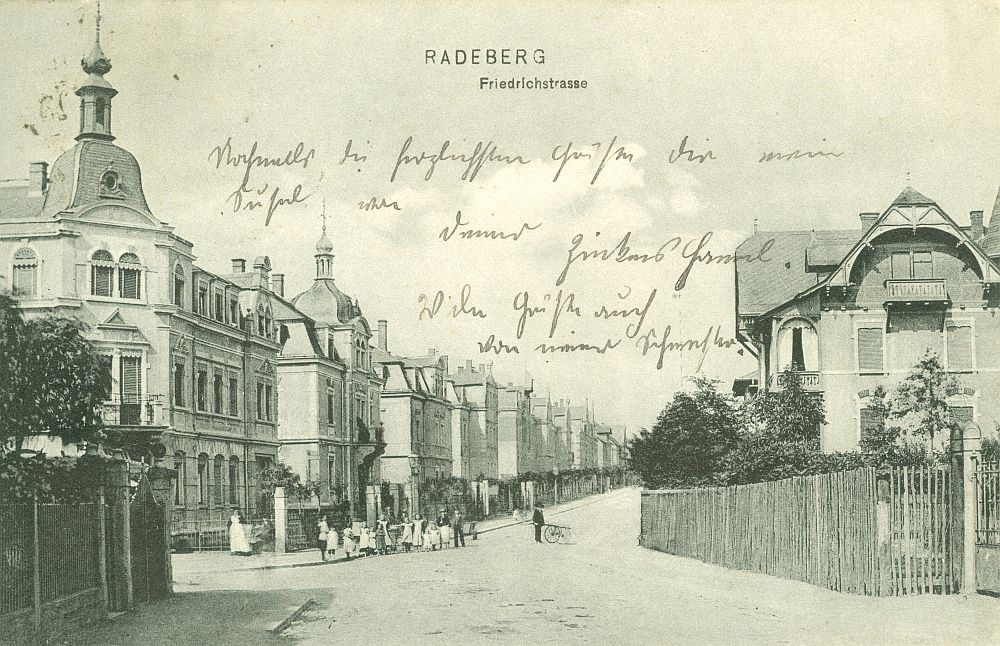 RADEBERG
Friedrichstrasse
Nochmals die herzlichsten Grüße Dir mein
Süßel von
Deiner
Hansel
Viele Grüße auch
von meiner Schwester.